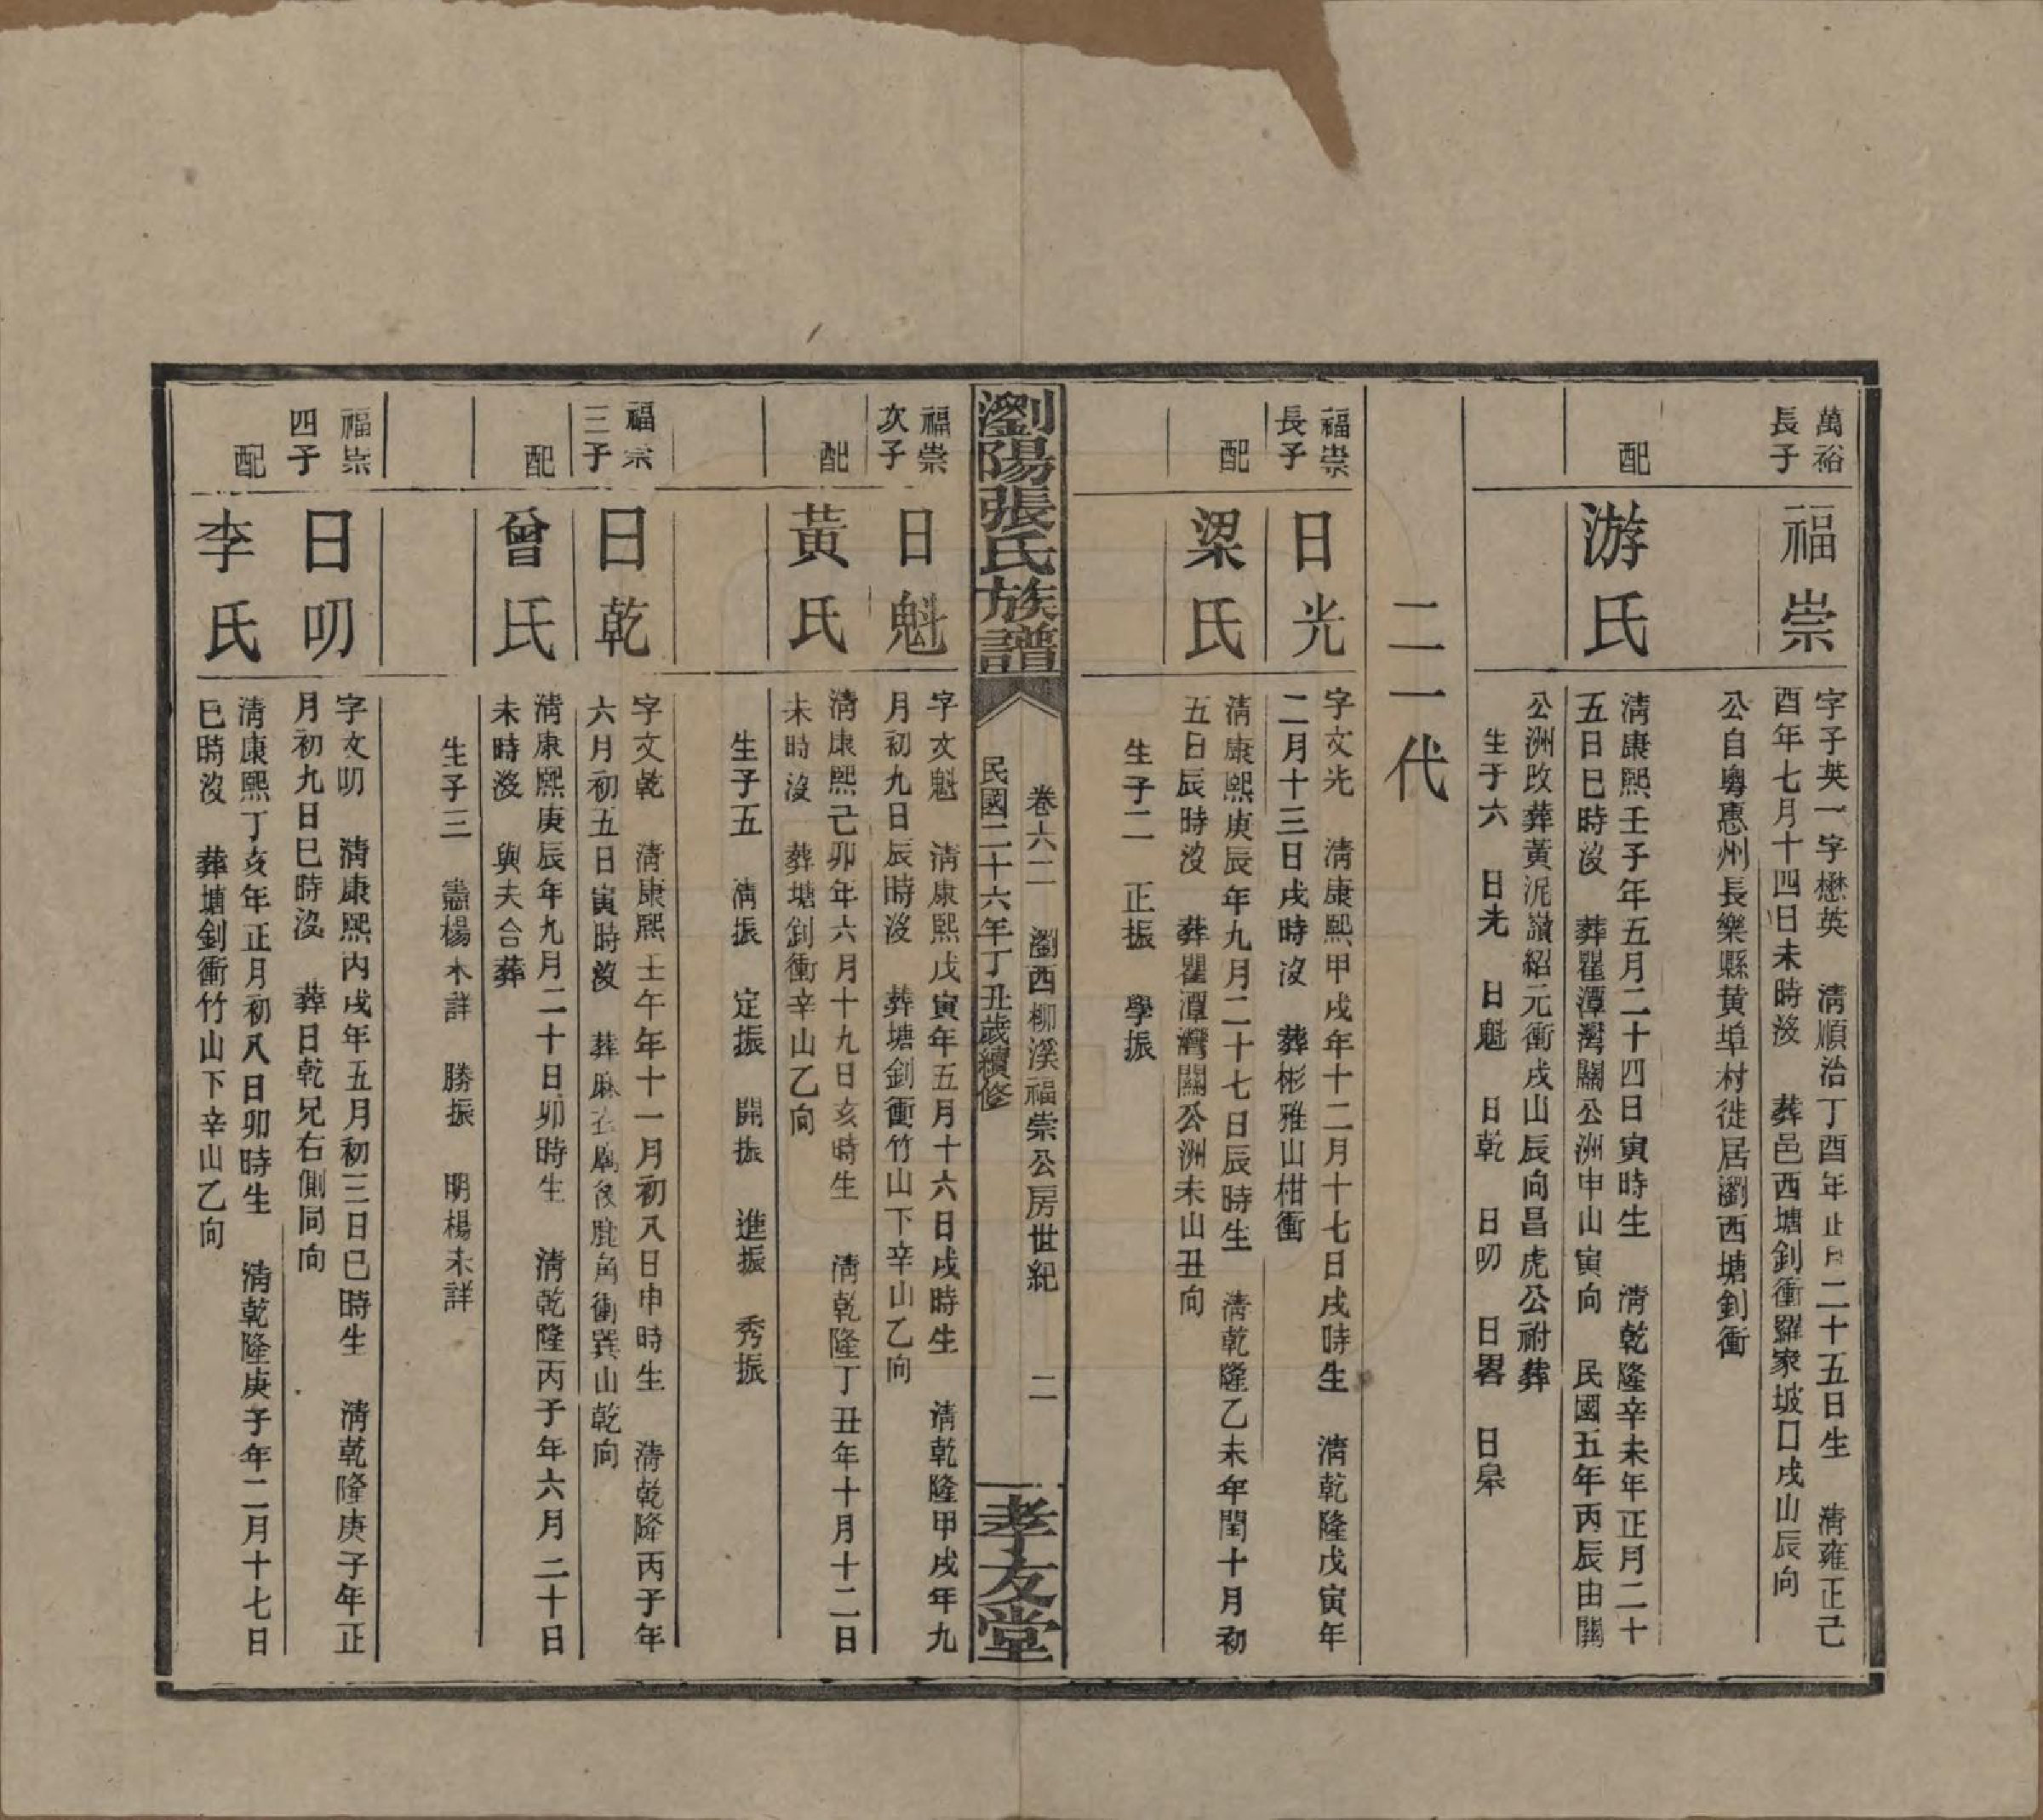 萬裕
長子
福崇
字子英一字懋英　清順治丁酉年正月二十五日生　清雍正己
酉年七月十四日未時沒　葬邑西塘釗衝羅家坡口戌山辰向
公自粵惠州長樂縣黃埠村徙居瀏西塘釗衝
配
游氏
清康熙壬子年五月二十四日寅時生　清乾隆辛未年正月二十
五日巳時沒　葬瞿潭灣關公洲申山寅向　民國五年丙辰由關
公洲改葬黃泥嶺紹元衝戌山辰向昌虎公祔葬
生子六　日光　日魁　日乾　日叨　日畧　日皋
二代
福崇
長子
日光
字文光　清康熙甲戌年十二月十七日戌時生　清乾隆戊寅年
二月十三日戌時沒　葬彬雅山柑衝
配
梁氏
清康熙庚辰年九月二十七日辰時生　清乾隆乙未年閏十月初
五日辰時沒　葬瞿潭灣關公洲未山丑向
生子二　正振　學振
瀏陽張氏族譜
卷六二　瀏西柳溪福崇公房世紀　二
民國二十六年丁丑歲續修
孝友堂
福崇
次子
日魁
字文魁　清康熙戊寅年五月十六日戌時生　清乾隆甲戌年九
月初九日辰時沒　葬塘釗衝竹山下辛山乙向
配
黃氏
清康熙己卯年六月十九日亥時生　清乾隆丁丑年十月十二日
未時沒　葬塘釗衝辛山乙向
生子五　清振　定振　開振　進振　秀振
福崇
三子
日乾
字文乾　清康熙壬午年十一月初八日申時生　清乾隆丙子年
六月初五日寅時沒　葬麻衣廟後鹿角衝巽山乾向
配
曾氏
清康熙庚辰年九月二十日卯時生　清乾隆丙子年六月二十日
未時沒　與夫合葬
生子三　蕭楊未詳　勝振　明楊未詳
福崇
四子
日叨
字文叨　清康熙丙戌年五月初三日巳時生　清乾隆庚子年正
月初九日巳時沒　葬日乾兄右側同向
配
李氏
清康熙丁亥年正月初八日卯時生　清乾隆庚子年二月十七日
巳時沒　葬塘釗衝竹山下辛山乙向